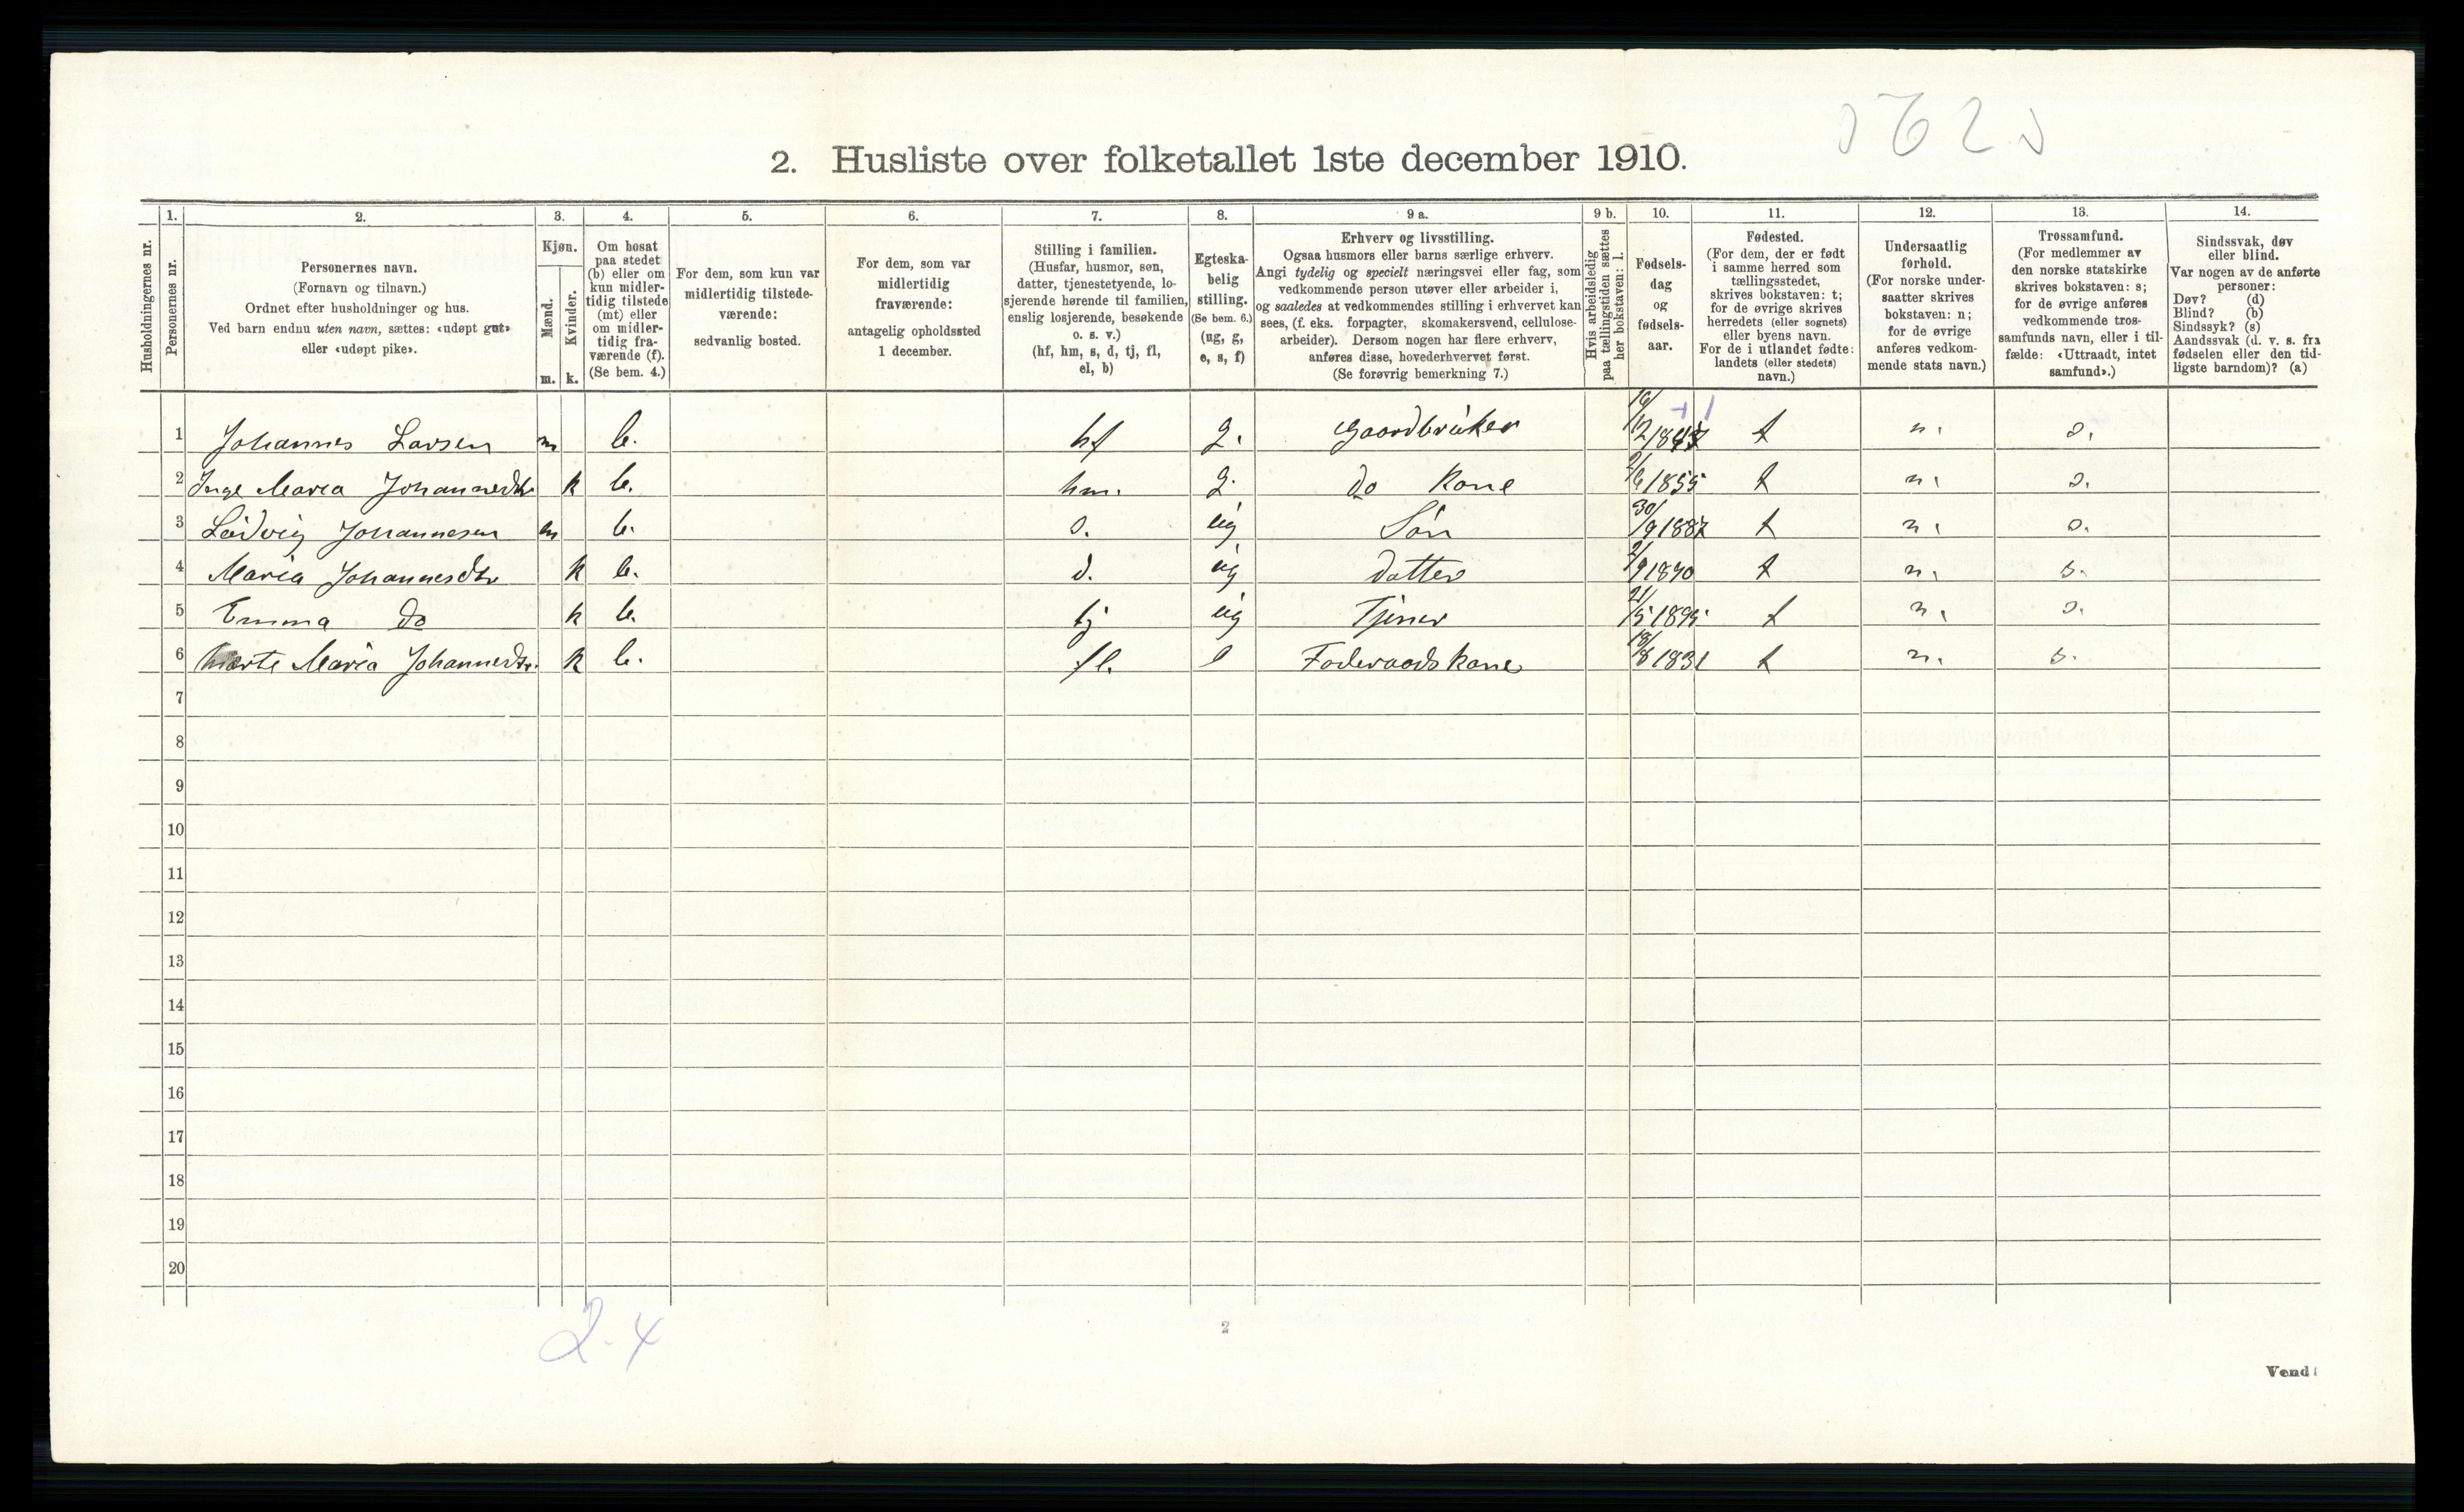 2. Husliste over folketallet 1ste december 1910.
1. 2. 3. 4. 5. 6. 7. 8. 9 a. 9 b. 10. 11. 12. 13. 14.
Husholdningernes nr.
Personernes nr.
Personernes navn.
(Fornavn og tilnavn.)
Ordnet efter husholdninger og hus.
Ved barn endnu uten navn, sættes: «udøpt gut»
eller «udøpt pike».
Kjøn.
Mænd.
Kvinder.
m. k.
Om bosat
paa stedet
(b) eller om
kun midler-
tidig tilstede
(mt) eller
om midler-
tidig fra-
værende (f).
(Se bem. 4.)
For dem, som kun var
midlertidig tilstede-
værende:
sedvanlig bosted.
For dem, som var
midlertidig
fraværende:
antagelig opholdssted
1 december.
Stilling i familien.
(Husfar, husmor, søn,
datter, tjenestetyende, lo-
sjerende hørende til familien,
enslig losjerende, besøkende
o. s. v.)
(hf, hm, s, d, tj, fl,
el, b)
Egteska-
belig
stilling.
(Se bem. 6.)
(ug, g,
e, s, f)
Erhverv og livsstilling.
Ogsaa husmors eller barns særlige erhverv.
Angi tydelig og specielt næringsvei eller fag, som
vedkommende person utøver eller arbeider i,
og saaledes at vedkommendes stilling i erhvervet kan
sees, (f. eks. forpagter, skomakersvend, cellulose-
arbeider). Dersom nogen har flere erhverv,
anføres disse, hovederhvervet først.
(Se forøvrig bemerkning 7.)
Hvis arbeidsledig
paa tællingstiden sættes
her bokstaven: l.
Fødsels-
dag
og
fødsels-
aar.
Fødested.
(For dem, der er født
i samme herred som
tællingsstedet,
skrives bokstaven: t;
for de øvrige skrives
herredets (eller sognets)
eller byens navn.
For de i utlandet fødte:
landets (eller stedets)
navn.)
Undersaatlig
forhold.
(For norske under-
saatter skrives
bokstaven: n;
for de øvrige
anføres vedkom-
mende stats navn.)
Trossamfund.
(For medlemmer av
den norske statskirke
skrives bokstaven: s;
for de øvrige anføres
vedkommende tros-
samfunds navn, eller i til-
fælde: «Uttraadt, intet
samfund».)
Sindssvak, døv
eller blind.
Var nogen av de anførte
personer:
Døv? (d)
Blind? (b)
Sindssyk? (s)
Aandssvak (d. v. s. fra
fødselen eller den tid-
ligste barndom)? (a)
1 Johannes Larsen m b. hf g. Gaardbruker t n. s.
2 Inge Maria Johannesdtr k b. hm. g. do Kone 2/6 1855 t n. s.
3 Ludvig Johannesen m b. s. ug Søn 30/9 1887 t n. s.
4 Maria Johannesdtr k b. d. ug datter 2/9 1890 t n. s.
5 Emma do k b. tj ug Tjener 21/5 1895 t n. s.
6 Marte Maria Johannesdtr. k b. fl. e Foderaadskone 18/8 1831 t n. s.
7
8
9
10
11
12
13
14
15
16
17
18
19
20
2-4
2
Vend!